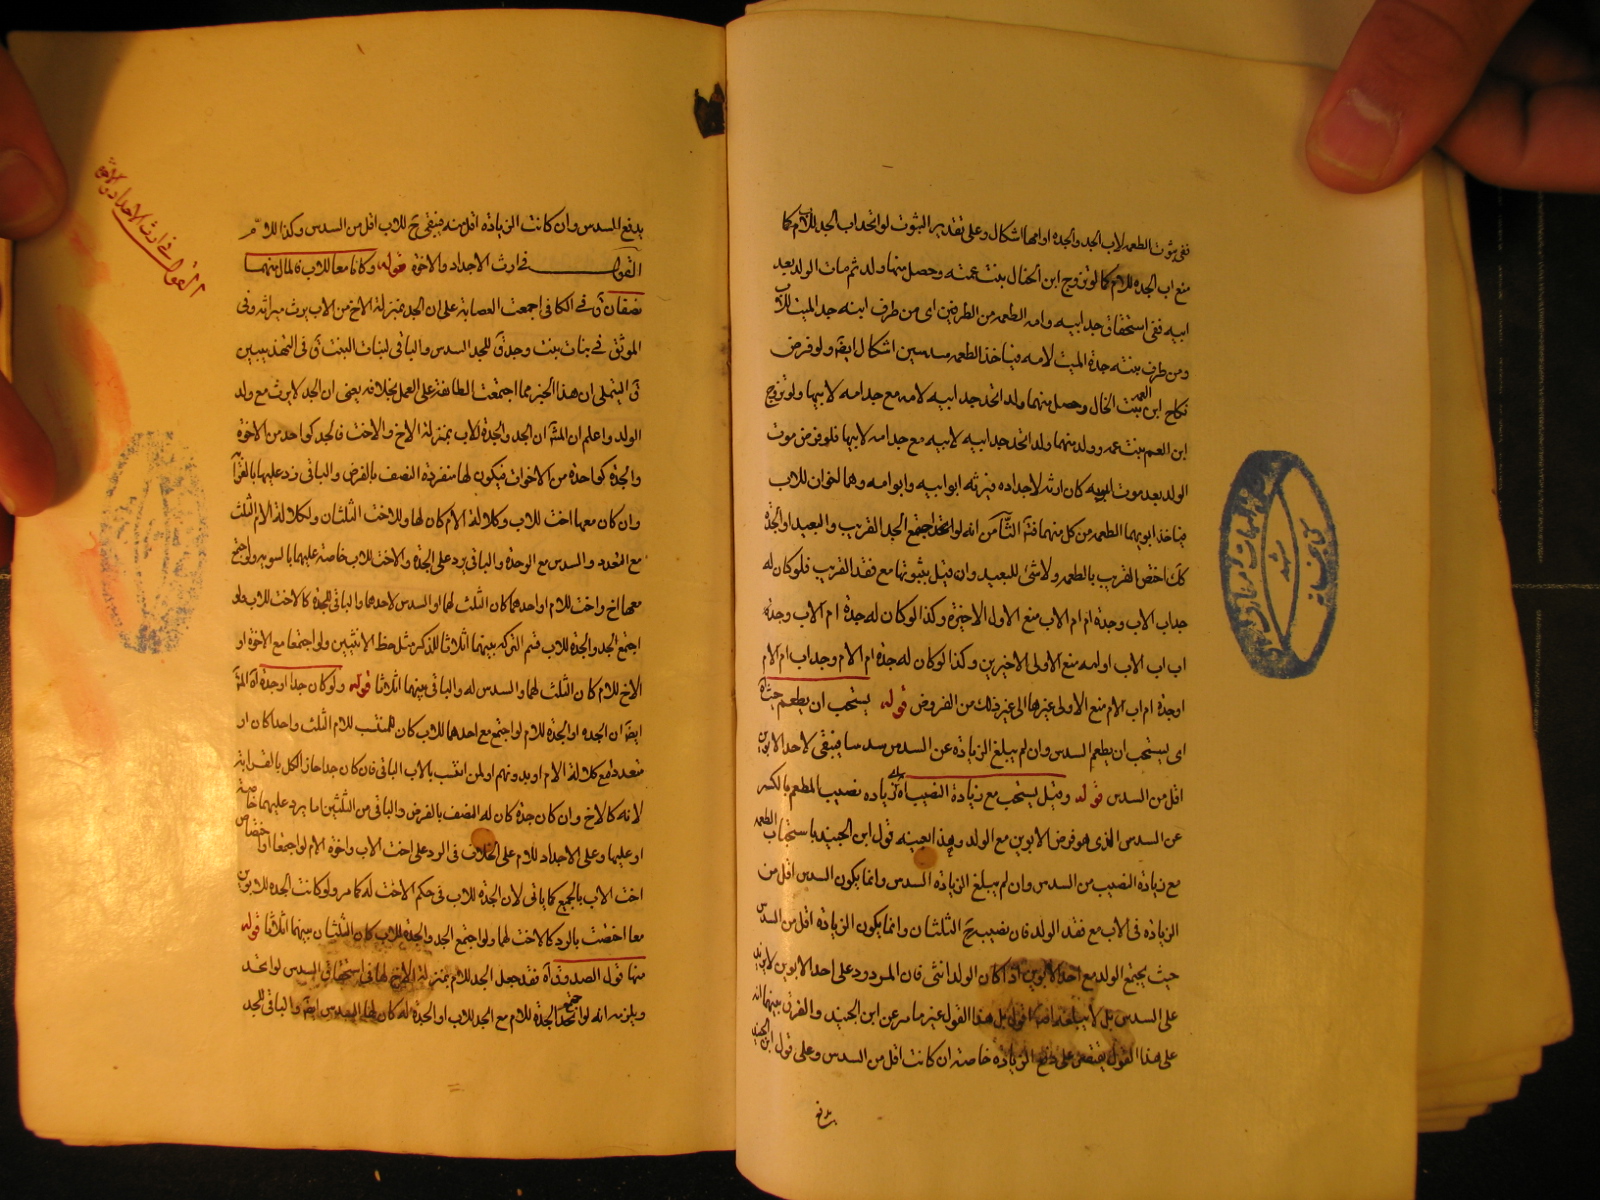 ففى ثبوت الطعمه لاب الجد والجده او امها اشكال وعلى تقدير الثبوت لو اتحد اب الجد للاب كما
منع اب الجده للام كما لو تزوج ابن الخال بنت عمته وحصل منها ولد ثم مات الولد بعد
ابيه ففى استحقاق جد ابيه وامه الطعمه من الطرفين اى من طرف ابنه جد الميت للاب
ومن طرف بنته جدة الميت لامه فياخذ الطعمه سدسين اشكال ايضا ولو فرض
نكاح ابن العمه بنت الخال وحصل منهما ولد اتحد جد ابيه لامه مع جد امه لابيها ولو تزوج
ابن العم بنت عمه وولد منهما ولد اتحد جد ابيه لابيه مع جد امه لابيها فلو فرض موت
الولد بعد موت ابيه كان ارثه لاجداده فيرثه ابو ابيه وابو امه وهما اخوان للاب
فياخذ ابوهما الطعمه من كل منهما فت الثامن انه لو اجتمع الجد القريب والبعيد او الجدة
كك اختص القريب بالطعمه ولا شئ للبعيد وان قيل بثبوتها مع فقد القريب فلو كان له
جد اب الاب وجدة ام ام الاب منع الاول الاخيرة وكذا لو كان له جدة ام الاب وجده
اب اب الاب او امه منع الاولى الاخيرين وكذا لو كان له جدة ام الام وجد اب ام الام
او جدة ام اب الام منع الاولى غيرها الى غير ذلك من الفروض قوله يستحب ان يطعم حيث اه
اى يستحب ان يطعم السدس وان لم يبلغ الزيادة عن السدس سدسا فيبقى لاحد الابوين
اقل من السدس قوله وقيل يستحب مع زيادة النصيب اه اى زياده نصيب المطعم بالكسر
عن السدس الذى هو فرض الابوين مع الولد وهذا بعينه قول ابن الجنيد باستحباب الطعمه
مع زيادة النصيب من السدس وان لم يبلغ الزيادة السدس وانما يكون السدس اقل من
الزيادة فى الاب مع فقد الولد فان نصيبه ح الثلثان وانما يكون الزيادة اقل من السدس
حيث يجتمع الولد مع احد الابوين اذا كان الولد انثى فان المردود على احد الابوين لا يزيد
على السدس بل لا يبلغه اقول بل هذا القول غير ما مر عن ابن الجنيد والفرق بينهما انه
على هذا القول يقتصر على دفع الزيادة خاصة ان كانت اقل من السدس وعلى قول ابن الجنيد
يدفع السدس وان كانت الزيادة اقل منه فيبقى ح للاب اقل من السدس وكذا للام
القول فى ارث الاجداد والاخوة قوله وكانا معا للاب فالمال بينهما
نصفان ق فى الكافى اجمعت العصابة على ان الجد بمنزلة الاخ من الاب يرث ميراثه وفى
الموثق فى بنات بنت وجد ق للجد السدس والباقى لبنات البنت ق فى التهذيبين
ق التيملى ان هذا الخبر مما اجتمعت الطائفة على العمل بخلافه يعنى ان الجد لا يرث مع ولد
الولد واعلم ان المش ان الجد والجدة للاب بمنزلة الاخ والاخت فالجد كواحد من الاخوة
والجدة كواحدة من الاخوات فيكون لها منفردة النصف بالفرض والباقى رد عليها بالقرابة
وان كان معها اخت للاب وكلالة الام كان لها وللاخت الثلثان ولكلالة الام الثلث
مع التعدد والسدس مع الوحدة والباقى يرد على الجدة والاخت للاب خاصة عليهما بالسويه ولو اجتمع
معها اخ واخت للام او احدهما كان الثلث لهما او السدس لاحدهما والباقى للجدة كالاخت للاب ولو
اجتمع الجد والجدة للاب قسم التركه بينهما اثلاثا للذكر مثل حظ الانثيين ولو اجتمعا مع الاخوة او
الاخ للام كان الثلث لهما والسدس له والباقى بينهما اثلاثا قوله ولو كان جدا او جدة اه المش
ايضا ان الجده او الجدة للام لو اجتمع مع احدهما للاب كان للمنتسب للام الثلث واحدا كان او
متعددا مع كلالة الام او بدونهم ولمن انتسب بالاب الباقى فان كان جدا حاز الكل بالقرابة
لانه كالاخ وان كان جدة كان له النصف بالفرض والباقى من الثلثين اما يرد عليهما خاصة
او عليها وعلى الاجداد للام على الخلاف فى الرد على اخت الاب واخوة الام لو اجتمعا او اختصاص
اخت الاب بالجميع كما ياتى لان الجدة للاب فى حكم الاخت له كما مر ولو كانت الجدة للابوين
معا اختصت بالرد كالاخت لهما ولو اجتمع الجد والجدة للاب كان الثلثان بينهما اثلاثا قوله
منها قول الصدوق اه فقد جعل الجد للام بمنزلة الاخ لها فى استحقاق السدس لو اتحد
ويلزمه انه لو اجتمع الجدة للام مع الجد للاب او الجدة له كان لها السدس ايضا والباقى للجد
القول فى ارث الاجداد والاخوة